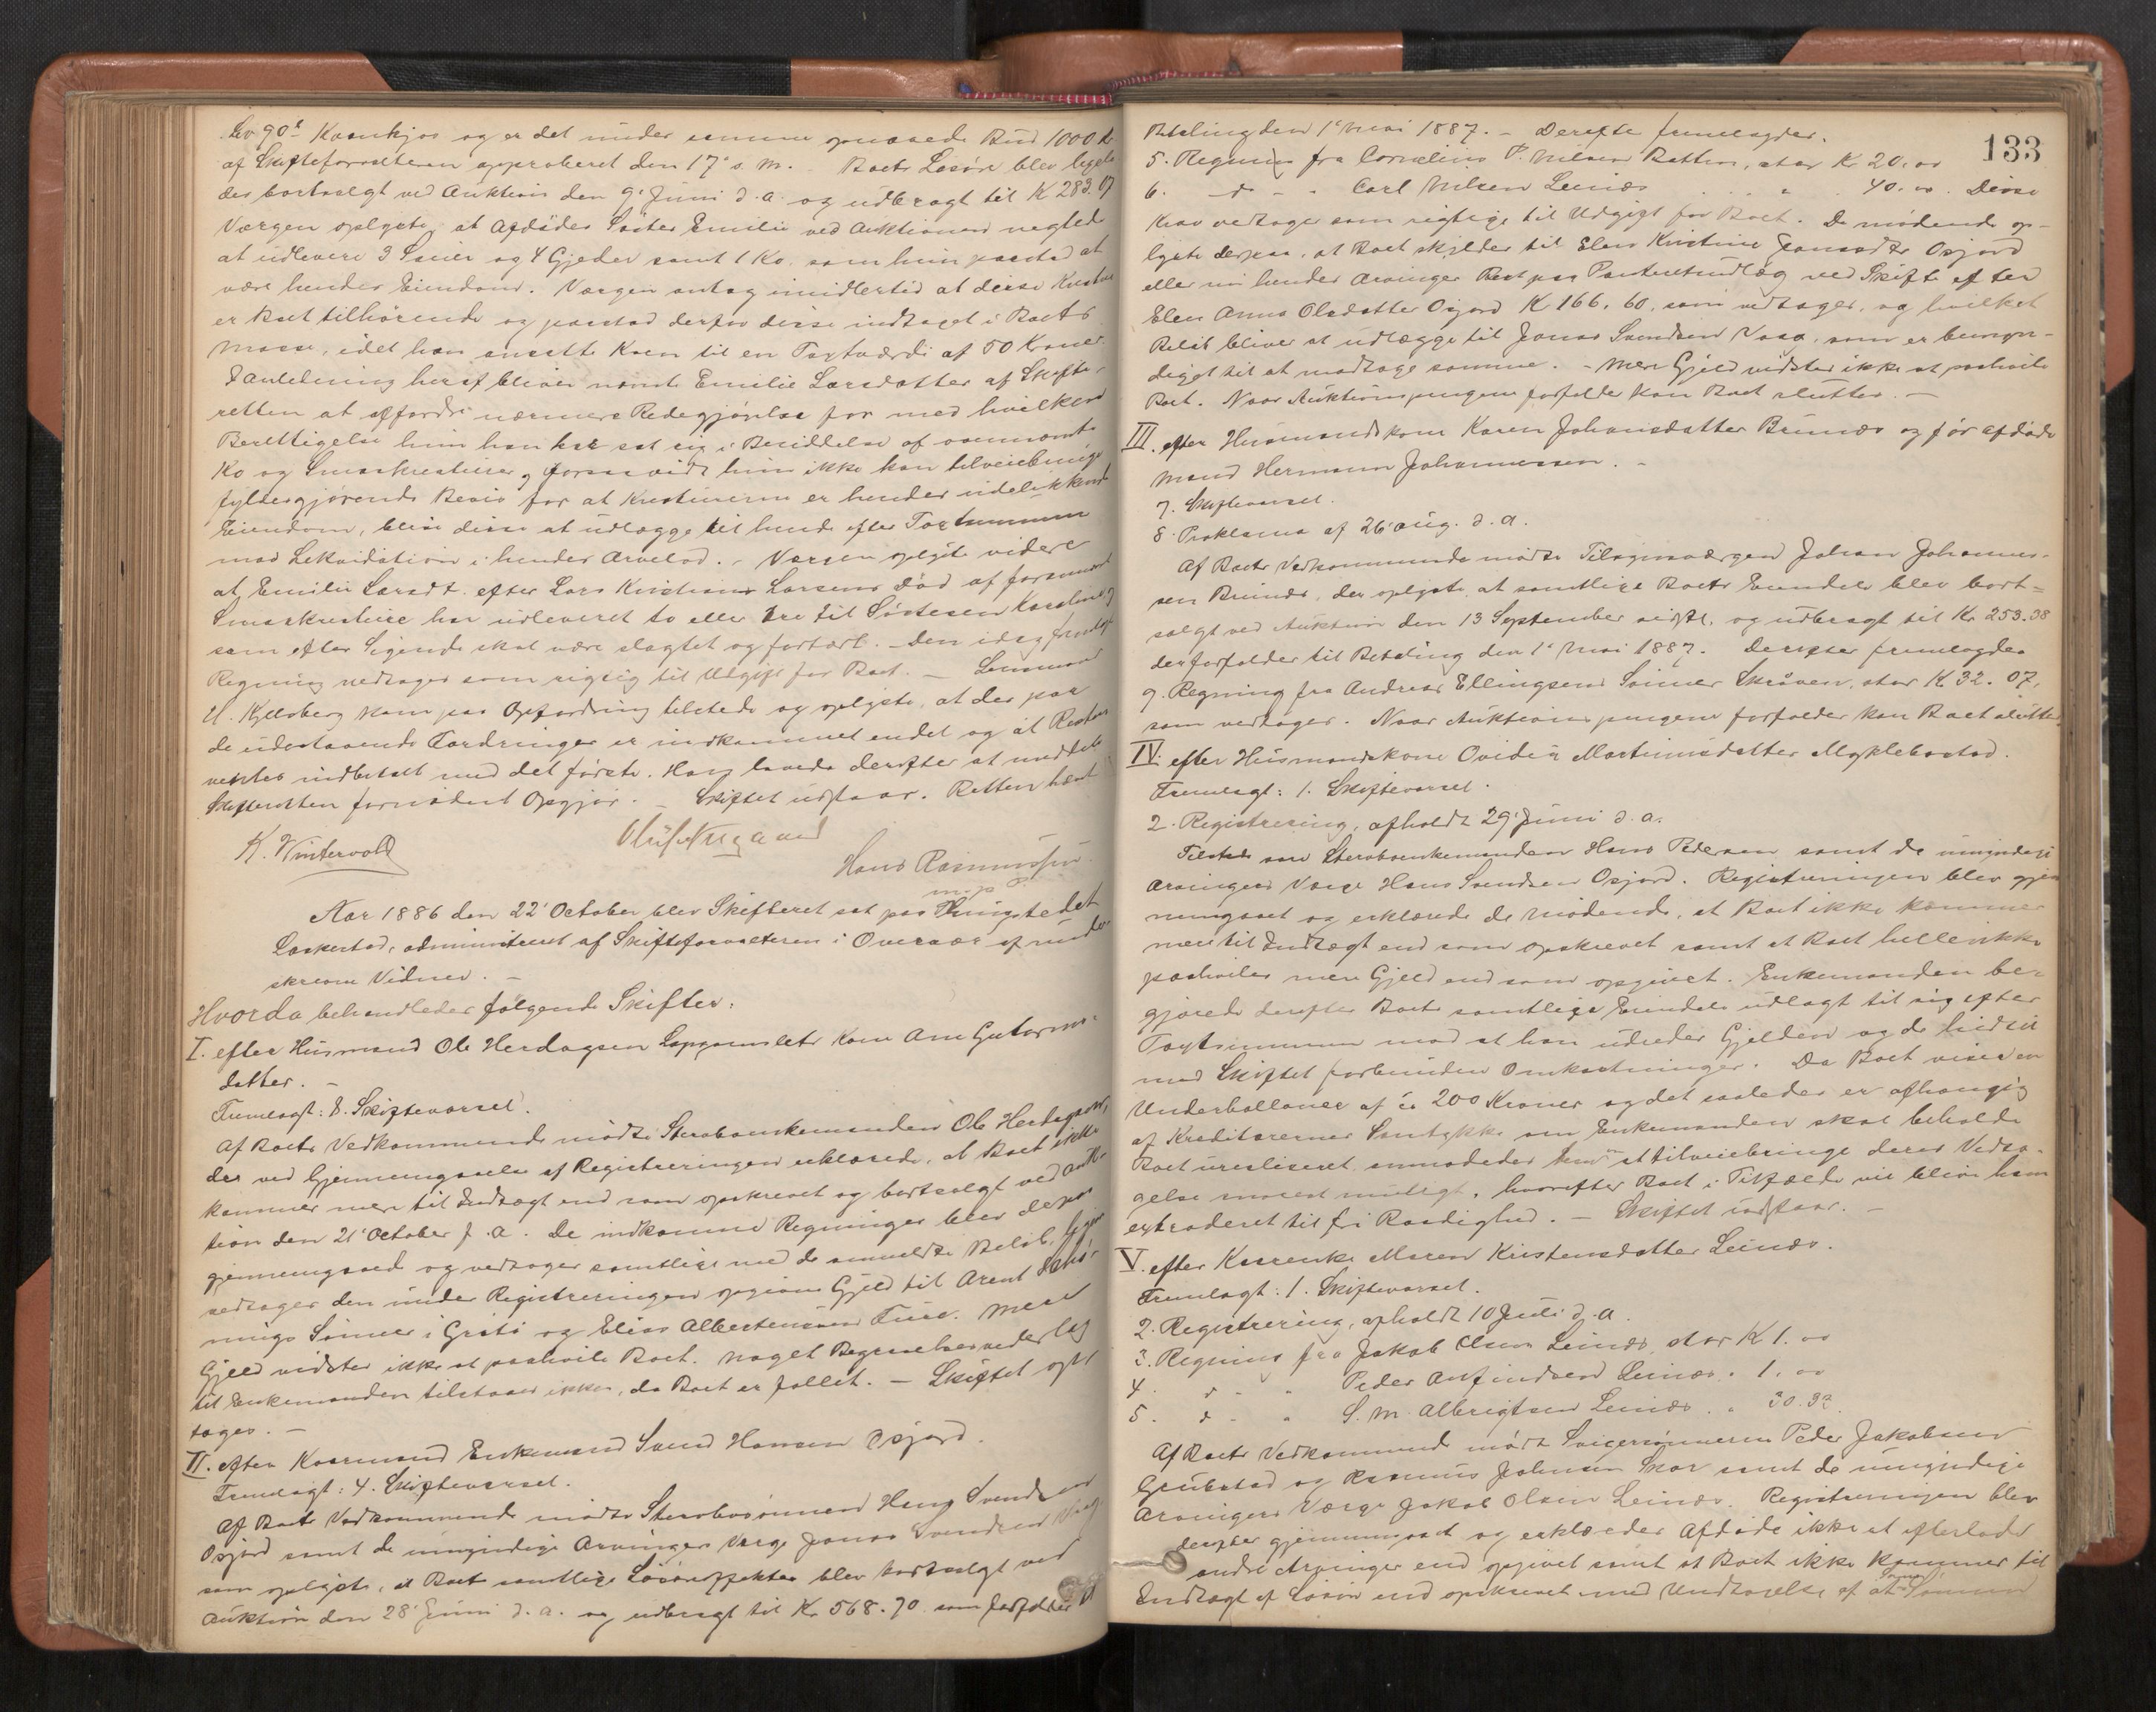 Lv 90b Kaarskjos og er det under samme opnaaede Bud 1000 Kr
af Skifteforvalteren approberet den 17' s. M. Boets Løsøre blev ligele-
des bortsolgt ved Auktion den 9' Juni d. a. og udbragt til K 283.07
Værgen oplyste, at Afdødes Søster Emilie ved Auktionen negted
at udlevere 3 Sauer og 4 Gjeder samt 1 Ko, som hun paastod at
være hendes Eiendom. Værgen antog imidlertid at disse Kreature
er Boet tilhørende og paastod derfor disse indtaget i Boets
Masse, idet han ansatte Koen til en Taxtværdi af 50 Kroner.
I Anledning heraf bliver nævnte Emilie Larsdatter af Skifte-
retten at affordre nærmere Redegjørelse for med hvilken
Berettigelse hun har sat sig i Besiddelse af ovennævnte
Ko og Smaakreature, og forsaavidt hun ikke kan tilveiebringe
fyldestgjørende Bevis for at Kreaturerne er hendes udelukkende
Eiendom, blive disse at udlægge til hende efter Taxtsummen
mod Likvidation i hendes Arvelod. - Værgen oplyste videre
at Emilie Larsdt. efter Lars Kristian Larsens Død af forannævnte
Smaakreature har udleveret to eller tre til Søsteren Karoline,
som efter Sigende skal være slagtet og fortært. - Den idag fremlagte
Regning vedtages som rigtig til Udgift for Boet. - Lensmand
U. Kjelsberg kom paa Opfordring tilstede og oplyste, at der paa
de udestaaende Fordringer er indkommet endel og at Resten
ventes indbetalt med det første. Han lovede derefter at meddele
Skifteretten fornødent Opgjør. - Skiftet udstaar. Retten hævet
K. Wintervold
Hans Rasmussen
m. p. P.
Aar 1886 den 22' October blev Skifteret sat paa Thingstedet
Laskestad, administreret af Skifteforvalteren i Overvær af under-
skrevne Vidner. -
Hvorda behandledes følgende Skifter:
I. efter Husmand Ole Herdagsen Kone Ane Gutorms-
datter. -
Fremlagt: 8. Skiftevarsel.
Af Boets Vedkommende mødte Stervboenkemanden Ole Herdagsen,
der ved Gjennemgaaelse af Registreringen erklærede, at Boet ikke
kommer mere til Indtægt end som opskrevet og bortsolgt ved Auk-
tion den 21' October f. a. De indkomne Regninger blev derpaa
gjennemgaaede og vedtages samtlige med de anmeldte Beløb, ligesom
vedtages den under Registreringen opgivne Gjeld til Arent
nings Sønner i Grøtø og Elias Albertensen Furu. Mere
Gjeld vidstes ikke at paahvile Boet. Noget Begravelsesvederlag
til Enkemanden tilstaaes ikke, da Boet er fallit. - Skiftet op-
tages. -
II. efter Kaarmand Enkemand Svend Hansen Osjord.
Fremlagt: 4. Skiftevarsel.
Af Boets Vedkommende mødte Stervbosønnen Hans Svendsen
Osjord samt de umyndige Arvingers Værge Jonas Svendsen Vaag
som oplyste, at Boets samtlige Løsøreeffekter blev bortsolgt ved
Auktion den 28' Juni d. a. og udbragt til Kr 568.70 som forfalder til
133
Betaling den 1' Mai 1887. - Derefter fremlagdes.
5. Regning fra Cornelius P. Nilsen Ratten, stor Kr 20.00
6. do - " Carl Nilsen Leinæs " 40.00. Disse
Krav vedtages som rigtige til Udgift for Boet. De mødende op-
lyste derpaa, at Boet skylder til Elen Kristine Jonsdtr Osjord
eller nu hendes Arvinger Rest paa Panteretsudlæg ved Skifte efter
Elen Anna Olsdatter Osjord Kr 166.60, som vedtages, og hvilket
Beløb bliver at udlægge til Jonas Svendsen Vaag, som er bemyn-
diget til at modtage samme. - Mere Gjeld vidstes ikke at paahvile
Boet. Naar Auktionspengene forfalder kan Boet sluttes. -
III. efter Husmandskone Karen Johansdatter Brunæs og før afdøde
Mand Hermann Johannessen. -
7. Skiftevarsel.
8. Proklama af 26' Aug. d. a.
Af Boets Vedkommende mødte Tilsynsværgen Johan Johannes-
sen Brunæs, der oplyste, at samtlige Boets Eiendele blev bort-
solgt ved Auktion den 13 September sidstl. og udbragt til Kr. 253.38
der forfalder til Betaling den 1' Mai 1887. Derefter fremlagdes
9. Regning fra Andreas Ellingsens Sønner Skroven, stor K 32.07,
som vedtages. Naar Auktionspengene forfalder kan Boet sluttes
IV. efter Husmandskone Ovidia Martinusdatter Myklebostad.
Fremlagt: 1. Skiftevarsel.
2. Registrering, afholdt 29' Juni d. a.
Tilstede var Stervboenkemanden Hans Pedersen samt de umyndige
Arvingers Værge Hans Svendsen Osjord. Registreringen blev gjen-
nemgaaet og erklærede de mødende, at Boet ikke kommer
mere til Indtægt end som opskrevet samt at Boet heller ikke
paahviler mere Gjeld end som opgivet. Enkemanden be-
gjærede derefter Boets samtlige Eiendele udlagt til sig efter
Taxtsummen mod at han udreder Gjelden og de
med Skiftet forbundne Omkostninger. Da Boet viser en
Underballance af ca 200 Kroner og det saaledes er afhængig
af Kreditorernes Samtykke om Enkemanden skal beholde
Boet urealiseret anmodedes han at tilveiebringe deres Vedta-
gelse snarest muligt, hvorefter Boet i Tilfælde vil blive ham
extraderet til fri Raadighed. - Skiftet udstaar. -
V. efter Kaarenke Maren Kristensdatter Leinæs.
Fremlagt: 1. Skiftevarsel.
2. Registrering, afholdt 10 Juli d. a.
3. Regning fra Jakob Olsen Leinæs, stor K 1.00
4. do - " Peder Anfindsen Leinæs " 1.00
5. do - " S. M. Albrigtsen Leinæs " 30.32.
Af Boets Vedkommende mødte Svigersønnerne Peder Jakobsen
Grubstad og Rasmus Johnsen Skar samt de umyndige
Arvingers Værge Jakob Olsen Leinæs. Registreringen blev
derefter gjennemgaaet og erklæredes Afdøde ikke at efterlade
andre Arvinger end opgivet samt at Boet ikke kommer til
Indtægt af Løsøre end opskrevet med Undtagelse af at Sønnen